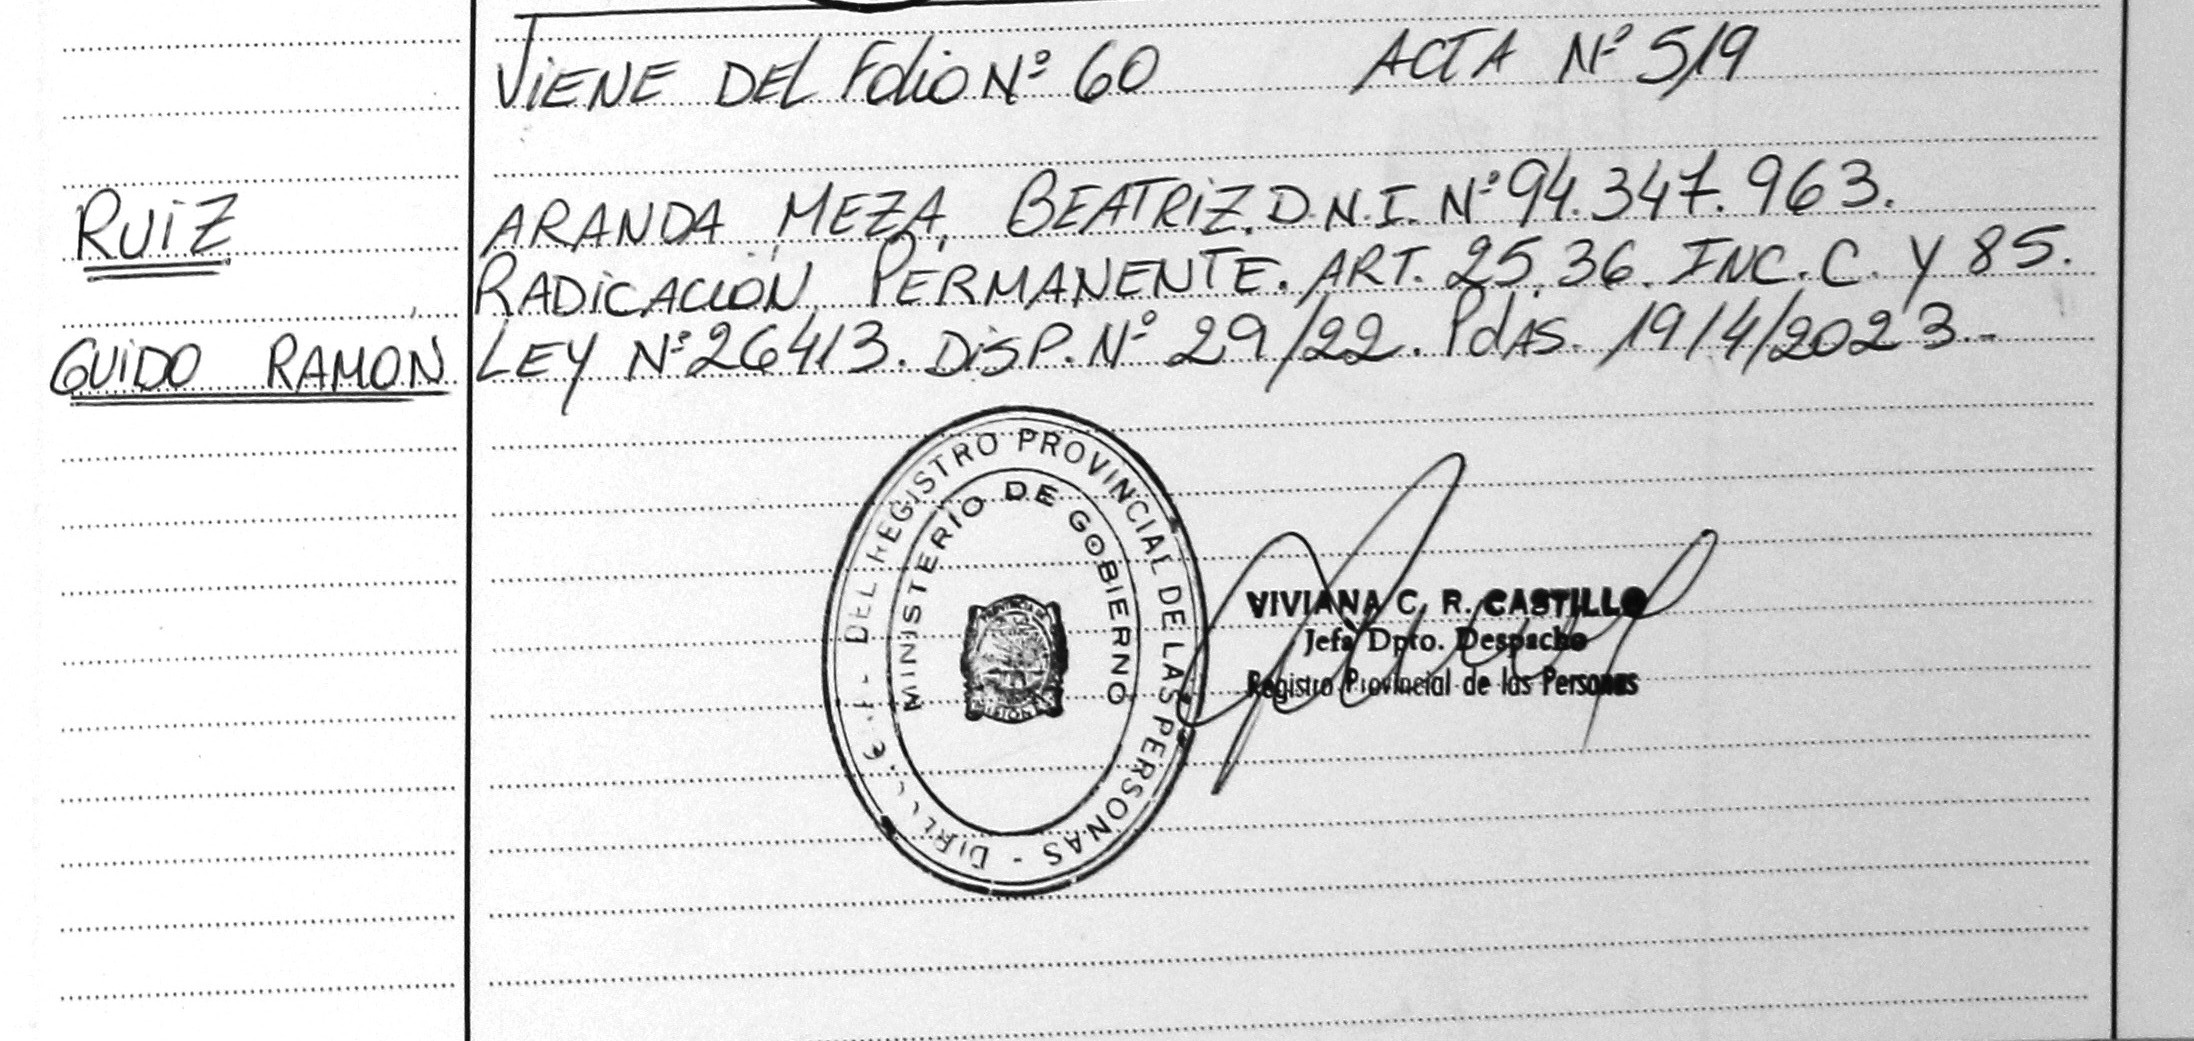 VIENE DEL Folio Nº 60 ACTA Nº 519
RUIZ
GUIDO RAMON
ARANDA MEZA, BEATRIZ. D.N.I. Nº 94.347.963.
RADICACION PERMANENTE. ART. 25, 36. INC. C. Y 85.
LEY Nº 26413. DISP. Nº 29/22. Pdas. 19/4/2023.-
DEL REGISTRO PROVINCIAL DE LAS PERSONAS -
MINISTERIO DE GOBIERNO
VIVIANA C. R. CASTILLO
Jefa Dpto. Despacho
Registro Provincial de las Personas